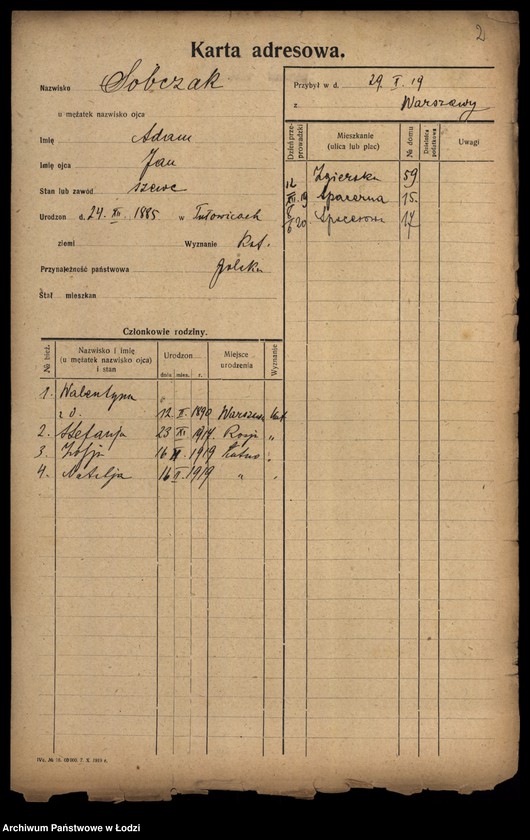 2
Karta adresowa.
Nazwisko Sobczak
u mężatek nazwisko ojca
Imię Adam
Imię ojca Jan
Stan lub zawód szewc
Urodzon d. 24. XII. 1885 w Tułowicach
ziemi Wyznanie Kat.
Przynależność państwowa polska
Stał mieszkan
Przybył w d. 29 I. 19
z Warszawy
Dzień przeprowadzki Mieszkanie (ulica lub plac) № domu Dzielnica podatkowa Uwagi
Zgierska 59
19 Spacerna 15.
20 Spacerowa 17
Członkowie rodziny.
№ bież. Nazwisko i imię (u mężatek nazwisko ojca) i stan Urodzon dnia mies. r. Miejsce urodzenia Wyznanie
1. Walentyna
12. II. 1890 Warszawa kat
2. Stefanja 23 XI 1914 Rosja „
3 Zofja 16 II. 1919 „
4. Natalja 16 II. 1919 „ „
7. X. 1919 r.
Archiwum Państwowe w Łodzi